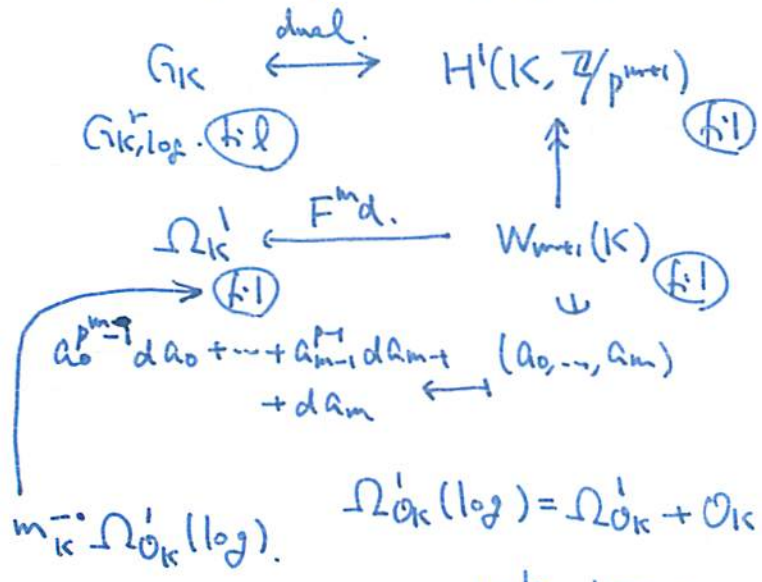 dual.
G_K ⟷ H¹(K, ℤ/p^{m+1})
G^r_{K,log}. fil fil
Ω¹_K ⟵ F^m d. W_{m+1}(K)
fil fil
∪
a_0^{p^m-1} da_0 + ... + a_{m-1}^{p-1} da_{m-1} (a_0, ..., a_m)
+ da_m ⟻
Ω¹_{O_K}(log) = Ω¹_{O_K} + O_K
m_K^{-•} Ω¹_{O_K}(log).